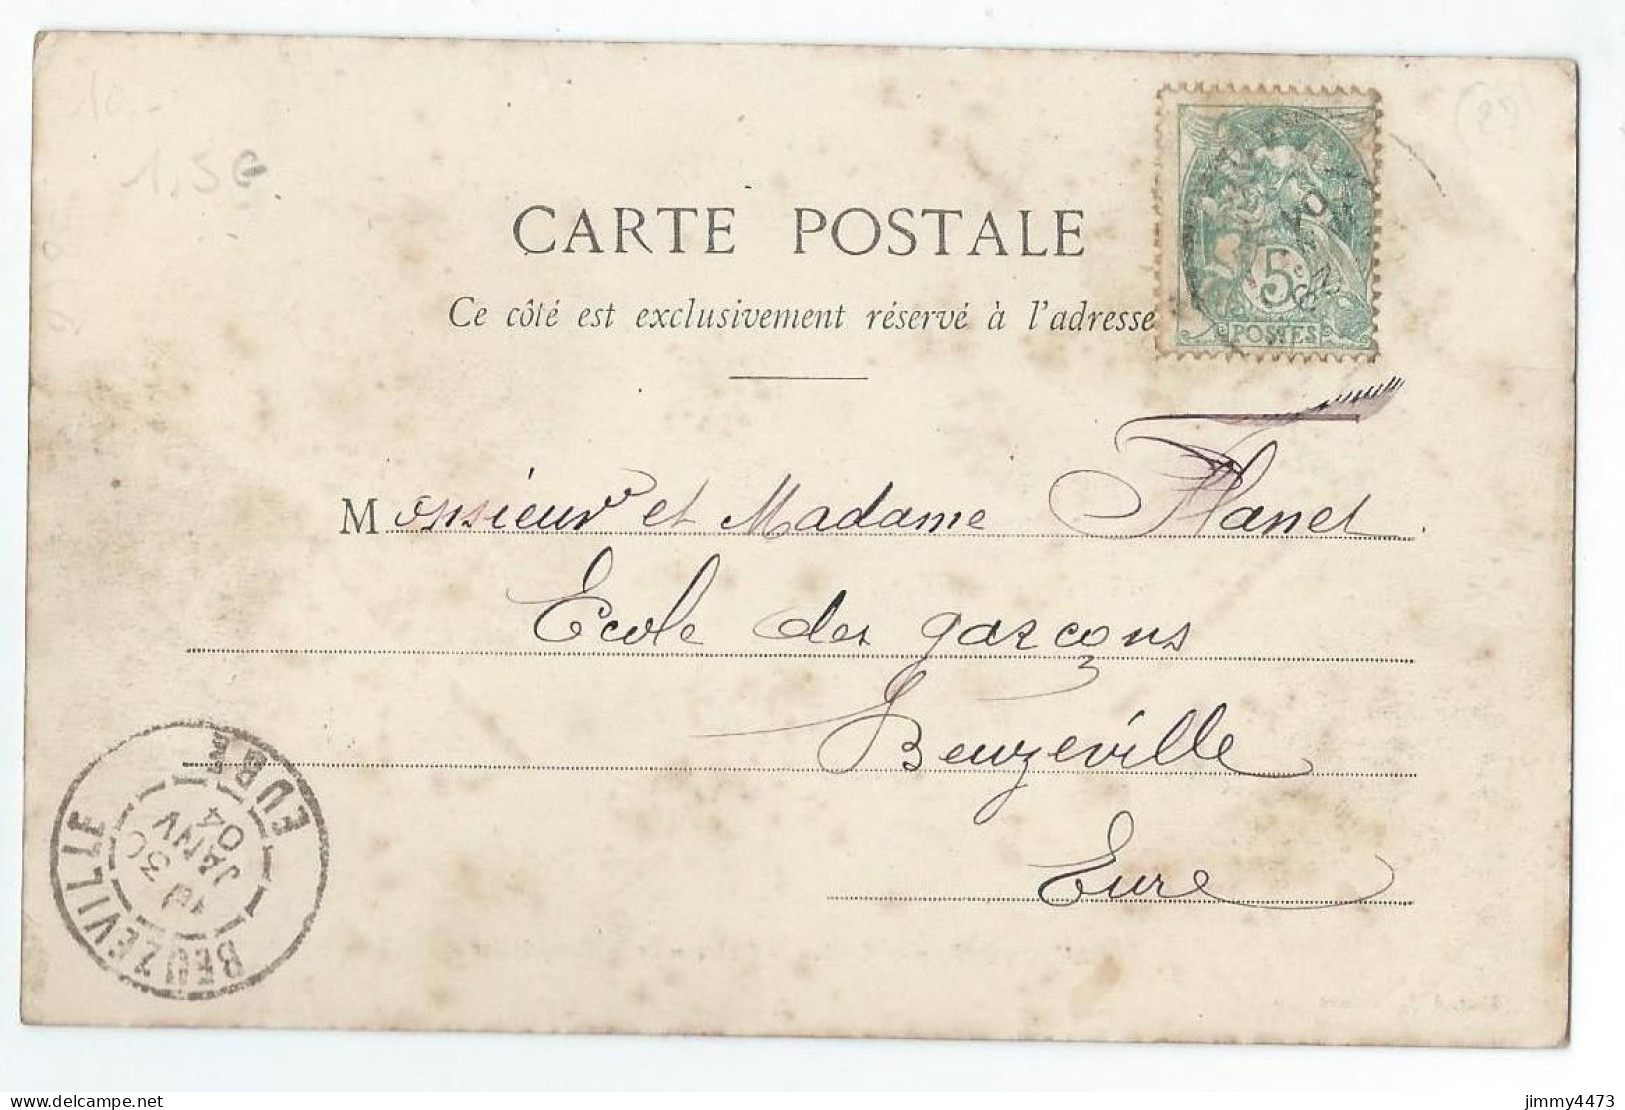 10.-
1,5€
CARTE POSTALE
Ce côté est exclusivement réservé à l'adresse
5c
POSTES
Monsieur et Madame Flanet
Ecole des garçons
Beuzeville
Eure
BEUZEVILLE
EURE
30
JANV
04
jimmy4473